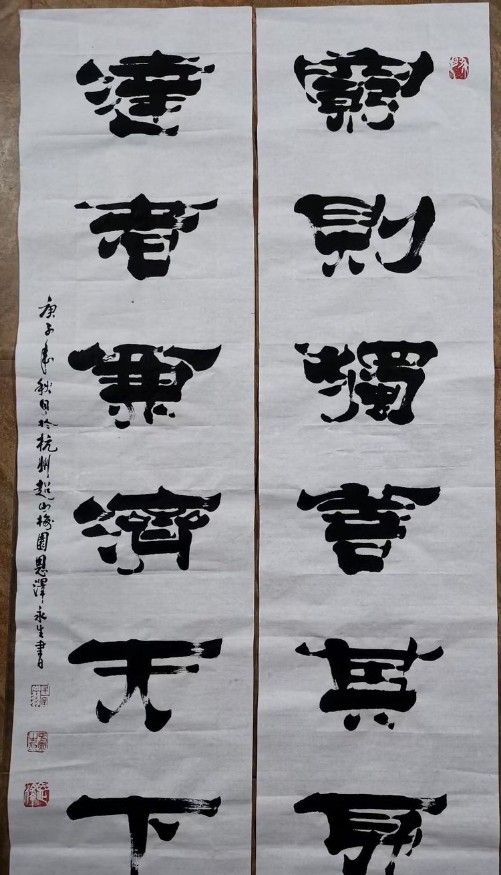 窮則獨善其身
達者兼濟天下
庚子年秋月於杭州超山梅園恩澤永生書